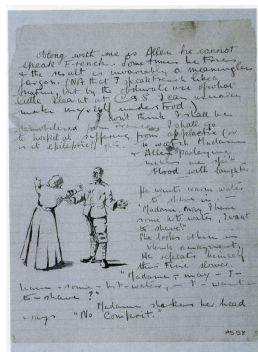 Along with me as Allen he cannot
speak French. Sometimes he tries,
& the result is invariably a meaningless
jargon. (Not that I speak French like a
native, but by the obdurate use of what
little I learnt at C.S.S I can usually
make my self understood.)
I don't think I shall be
I shall
to hospital suffering from apoplectics (or
is it epileptics!) fits.
to watch Madame
& Allen parleying
makes me spit
blood with laughter.
He wants warm water
to shave in
"Madame, may I have
some hot water, I want
to shave."
She looks at him in
blank amazement,
He repeats himself
this time slower.
"Madame - may - I -
have - some - hot - water, - I - want -
to - shave?"
Madame shakes her head
says "No Comprit."